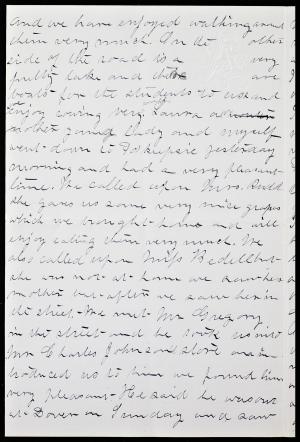 and we have enjoyed walking around
them very much. On the other
side of the road is a very
pretty lake and there are
boats for the students to use and
enjoy rowing very. Laura
another young lady and myself
went down to Po'keepsie yesterday
morning and had a very pleasant
time. We called upon Mrs. Budd
she gave us some very nice grapes
which we brought home and will
enjoy eating them very much. We
also called upon Miss Bedell but
she was not at home we saw her
mother but after we saw her in
the street. We met Mr Gregory
in the street and he took us into
Mr Charles Johnsons store and in-
troduced us to him we found him
very pleasant. He said he was out
at Dover on Sunday and saw